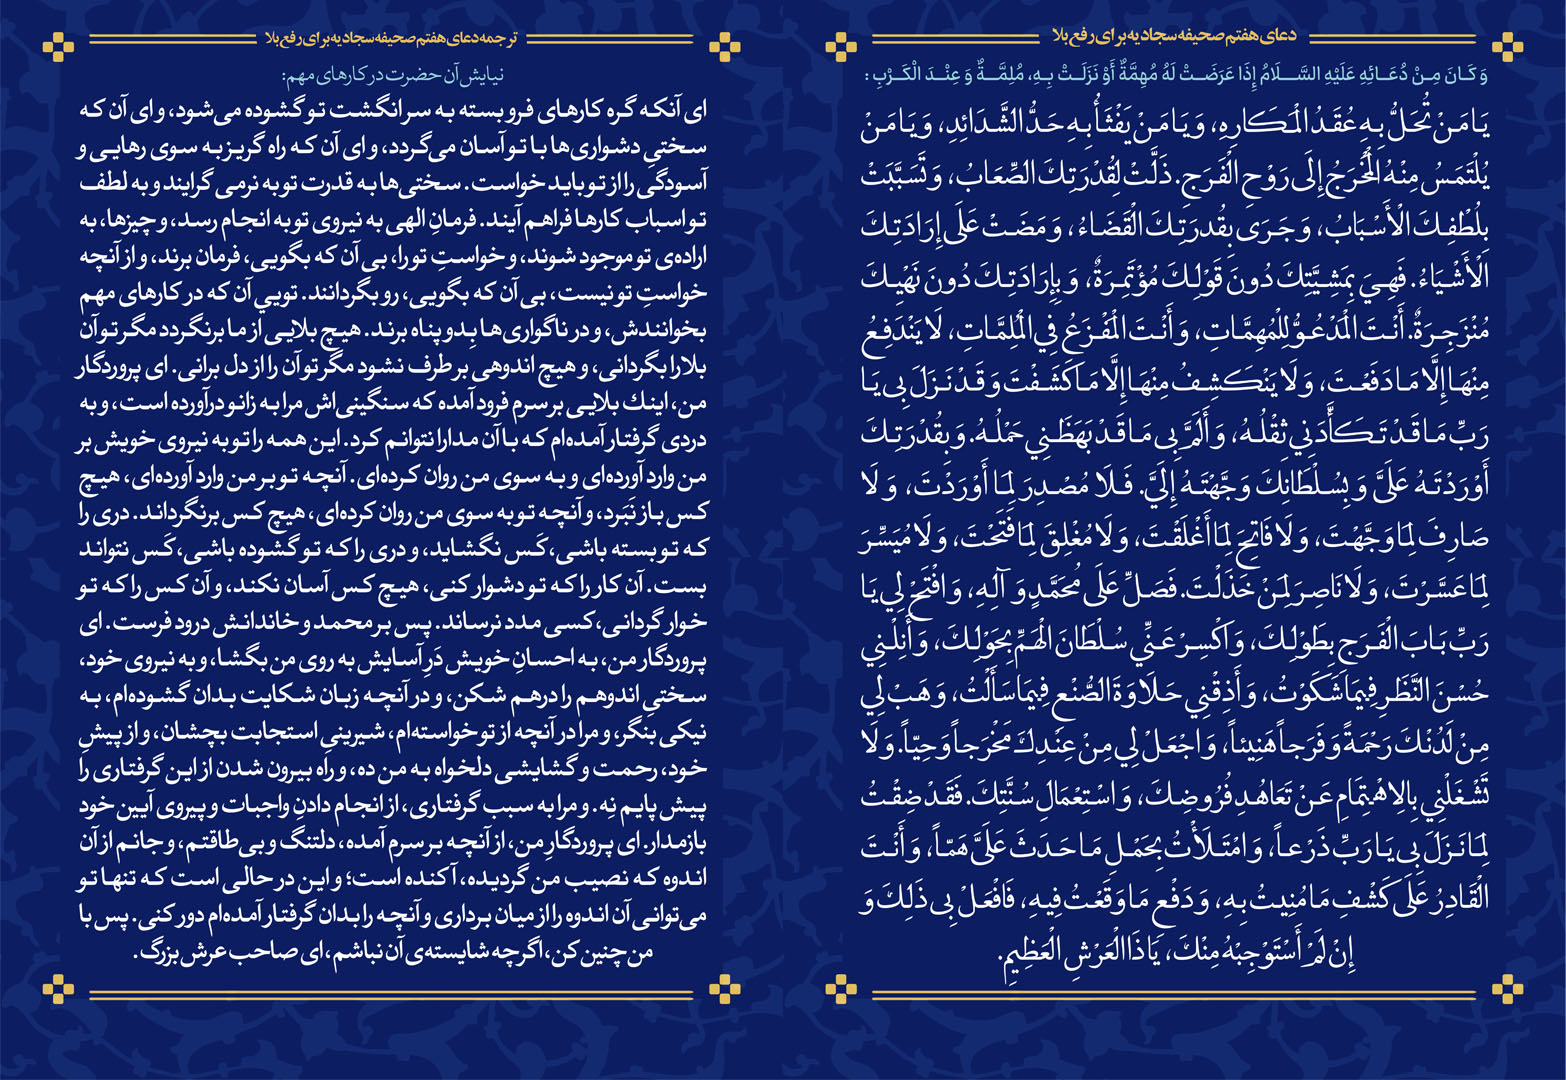 دعای هفتم صحیفه سجادیه برای رفع بلا
وَ كَانَ مِنْ دُعَائِهِ عَلَيْهِ السَّلَامُ إِذَا عَرَضَتْ لَهُ مُهِمَّةٌ أَوْ نَزَلَتْ بِهِ، مُلِمَّةٌ وَ عِنْدَ الْكَرْبِ :
يَا مَنْ تُحَلُّ بِهِ عُقَدُ الْمَكَارِهِ، وَ يَا مَنْ يَفْثَأُ بِهِ حَدُّ الشَّدَائِدِ، وَ يَا مَنْ
يُلْتَمَسُ مِنْهُ الْمَخْرَجُ إِلَى رَوْحِ الْفَرَجِ. ذَلَّتْ لِقُدْرَتِكَ الصِّعَابُ، وَ تَسَبَّبَتْ
بِلُطْفِكَ الْأَسْبَابُ، وَ جَرَى بِقُدرَتِكَ الْقَضَاءُ، وَ مَضَتْ عَلَى إِرَادَتِكَ
الْأَشْيَاءُ. فَهِيَ بِمَشِيَّتِكَ دُونَ قَوْلِكَ مُؤْتَمِرَةٌ، وَ بِإِرَادَتِكَ دُونَ نَهْيِكَ
مُنْزَجِرَةٌ. أَنْتَ الْمَدْعُوُّ لِلْمُهِمَّاتِ، وَ أَنْتَ الْمَفْزَعُ فِي الْمُلِمَّاتِ، لَا يَنْدَفِعُ
مِنْهَا إِلَّا مَا دَفَعْتَ، وَ لَا يَنْكَشِفُ مِنْهَا إِلَّا مَا كَشَفْتَ وَ قَدْ نَزَلَ بِي يَا
رَبِّ مَا قَدْ تَكَأَّدَنِي ثِقْلُهُ، وَ أَلَمَّ بِي مَا قَدْ بَهَظَنِي حَمْلُهُ. وَ بِقُدْرَتِكَ
أَوْرَدْتَهُ عَلَيَّ وَ بِسُلْطَانِكَ وَجَّهْتَهُ إِلَيَّ. فَلَا مُصْدِرَ لِمَا أَوْرَدْتَ، وَ لَا
صَارِفَ لِمَا وَجَّهْتَ، وَ لَا فَاتِحَ لِمَا أَغْلَقْتَ، وَ لَا مُغْلِقَ لِمَا فَتَحْتَ، وَ لَا مُيَسِّرَ
لِمَا عَسَّرْتَ، وَ لَا نَاصِرَ لِمَنْ خَذَلْتَ. فَصَلِّ عَلَى مُحَمَّدٍ وَ آلِهِ، وَ افْتَحْ لِي يَا
رَبِّ بَابَ الْفَرَجِ بِطَوْلِكَ، وَ اكْسِرْ عَنِّي سُلْطَانَ الْهَمِّ بِحَوْلِكَ، وَ أَنِلْنِي
حُسْنَ النَّظَرِ فِيمَا شَكَوْتُ، وَ أَذِقْنِي حَلَاوَةَ الصُّنْعِ فِيمَا سَأَلْتُ، وَ هَبْ لِي
مِنْ لَدُنْكَ رَحْمَةً وَ فَرَجاً هَنِيئاً، وَ اجْعَلْ لِي مِنْ عِنْدِكَ مَخْرَجاً وَحِيّاً. وَ لَا
تَشْغَلْنِي بِالِاهْتِمَامِ عَنْ تَعَاهُدِ فُرُوضِكَ، وَ اسْتِعْمَالِ سُنَّتِكَ. فَقَدْ ضِقْتُ
لِمَا نَزَلَ بِي يَا رَبِّ ذَرْعاً، وَ امْتَلَأْتُ بِحَمْلِ مَا حَدَثَ عَلَيَّ هَمّاً، وَ أَنْتَ
الْقَادِرُ عَلَى كَشْفِ مَا مُنِيتُ بِهِ، وَ دَفْعِ مَا وَقَعْتُ فِيهِ، فَافْعَلْ بِي ذَلِكَ وَ
إِنْ لَمْ أَسْتَوْجِبْهُ مِنْكَ، يَا ذَا الْعَرْشِ الْعَظِيمِ.
ترجمه دعای هفتم صحیفه سجادیه برای رفع بلا
نیایش آن حضرت در کارهای مهم:
ای آنکه گره کارهای فرو بسته به سر انگشت تو گشوده می‌شود، و ای آن که
سختیِ دشواری‌ها با تو آسان می‌گردد، و ای آن که راه گریز به سوی رهایی و
آسودگی را از تو باید خواست. سختی‌ها به قدرت تو به نرمی گرایند و به لطف
تو اسباب کارها فراهم آیند. فرمانِ الهی به نیروی تو به انجام رسد، و چیزها، به
اراده‌ی تو موجود شوند، و خواستِ تو را، بی آن که بگویی، فرمان برند، و از آنچه
خواستِ تو نیست، بی آن که بگویی، رو بگردانند. تویی آن که در کارهای مهم
بخوانندش، و در ناگواری‌ها بِدو پناه برند. هیچ بلایی از ما برنگردد مگر تو آن
بلا را بگردانی، و هیچ اندوهی بر طرف نشود مگر تو آن را از دل برانی. ای پروردگار
من، اینك بلایی بر سرم فرود آمده که سنگینی‌اش مرا به زانو درآورده است، و به
دردی گرفتار آمده‌ام که با آن مدارا نتوانم کرد. این همه را تو به نیروی خویش بر
من وارد آورده‌ای و به سوی من روان کرده‌ای. آنچه تو بر من وارد آورده‌ای، هیچ
کس باز نَبَرد، و آنچه تو به سوی من روان کرده‌ای، هیچ کس برنگرداند. دری را
که تو بسته باشی، کَس نگشاید، و دری را که تو گشوده باشی، کَس نتواند
بست. آن کار را که تو دشوار کنی، هیچ کس آسان نکند، و آن کس را که تو
خوار گردانی، کسی مدد نرساند. پس بر محمد و خاندانش درود فرست. ای
پروردگار من، به احسانِ خویش دَرِ آسایش به روی من بگشا، و به نیروی خود،
سختیِ اندوهم را درهم شکن، و در آنچه زبان شکایت بدان گشوده‌ام، به
نیکی بنگر، و مرا در آنچه از تو خواسته‌ام، شیرینیِ استجابت بچشان، و از پیشِ
خود، رحمت و گشایشی دلخواه به من ده، و راه بیرون شدن از این گرفتاری را
پیش پایم نِه. و مرا به سبب گرفتاری، از انجام دادنِ واجبات و پیروی آیین خود
بازمدار. ای پروردگارِ من، از آنچه بر سرم آمده، دلتنگ و بی‌طاقتم، و جانم از آن
اندوه که نصیب من گردیده، آکنده است؛ و این در حالی است که تنها تو
می‌توانی آن اندوه را از میان برداری و آنچه را بدان گرفتار آمده‌ام دور کنی. پس با
من چنین کن، اگر چه شایسته‌ی آن نباشم، ای صاحب عرش بزرگ.